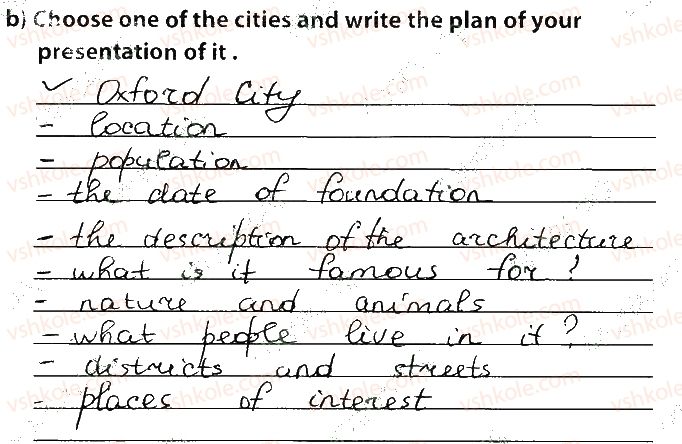 b) Choose one of the cities and write the plan of your
presentation of it .
✓ Oxford City
- location
- population
- the date of foundation
- the description of the architecture
- what is it famous for?
- nature and animals
- what people live in it?
- districts and streets
- places of interest